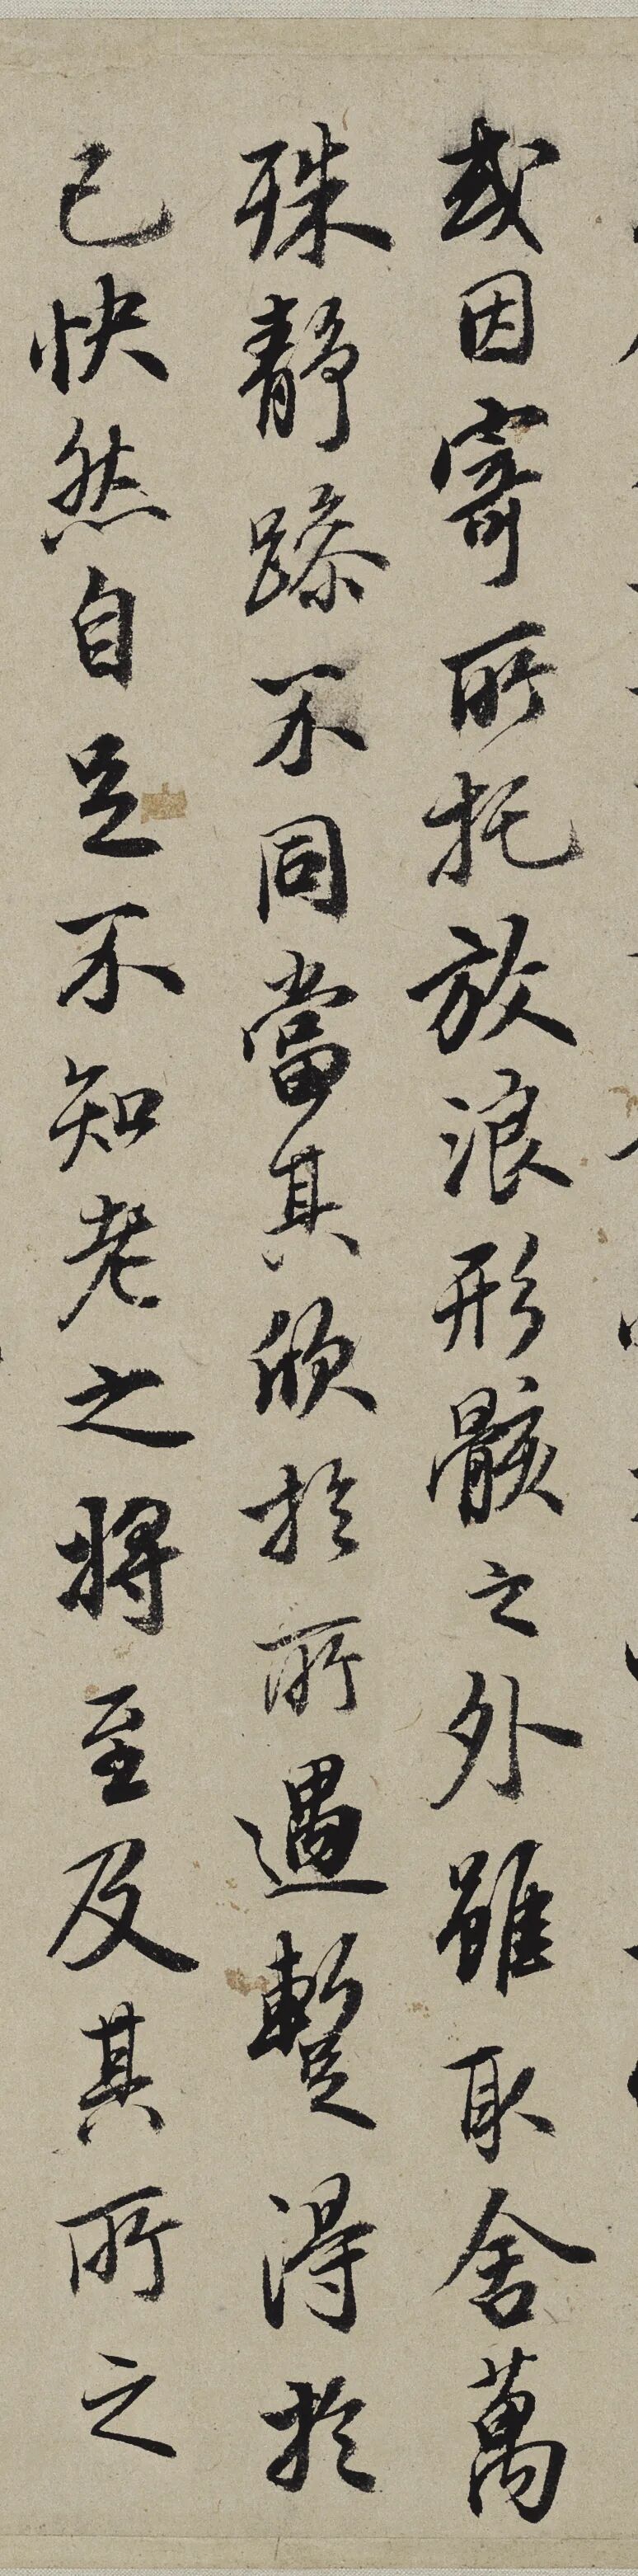 或因寄所托放浪形骸之外雖取舍萬
殊靜躁不同當其欣於所遇蹔得於
己快然自足不知老之將至及其所之